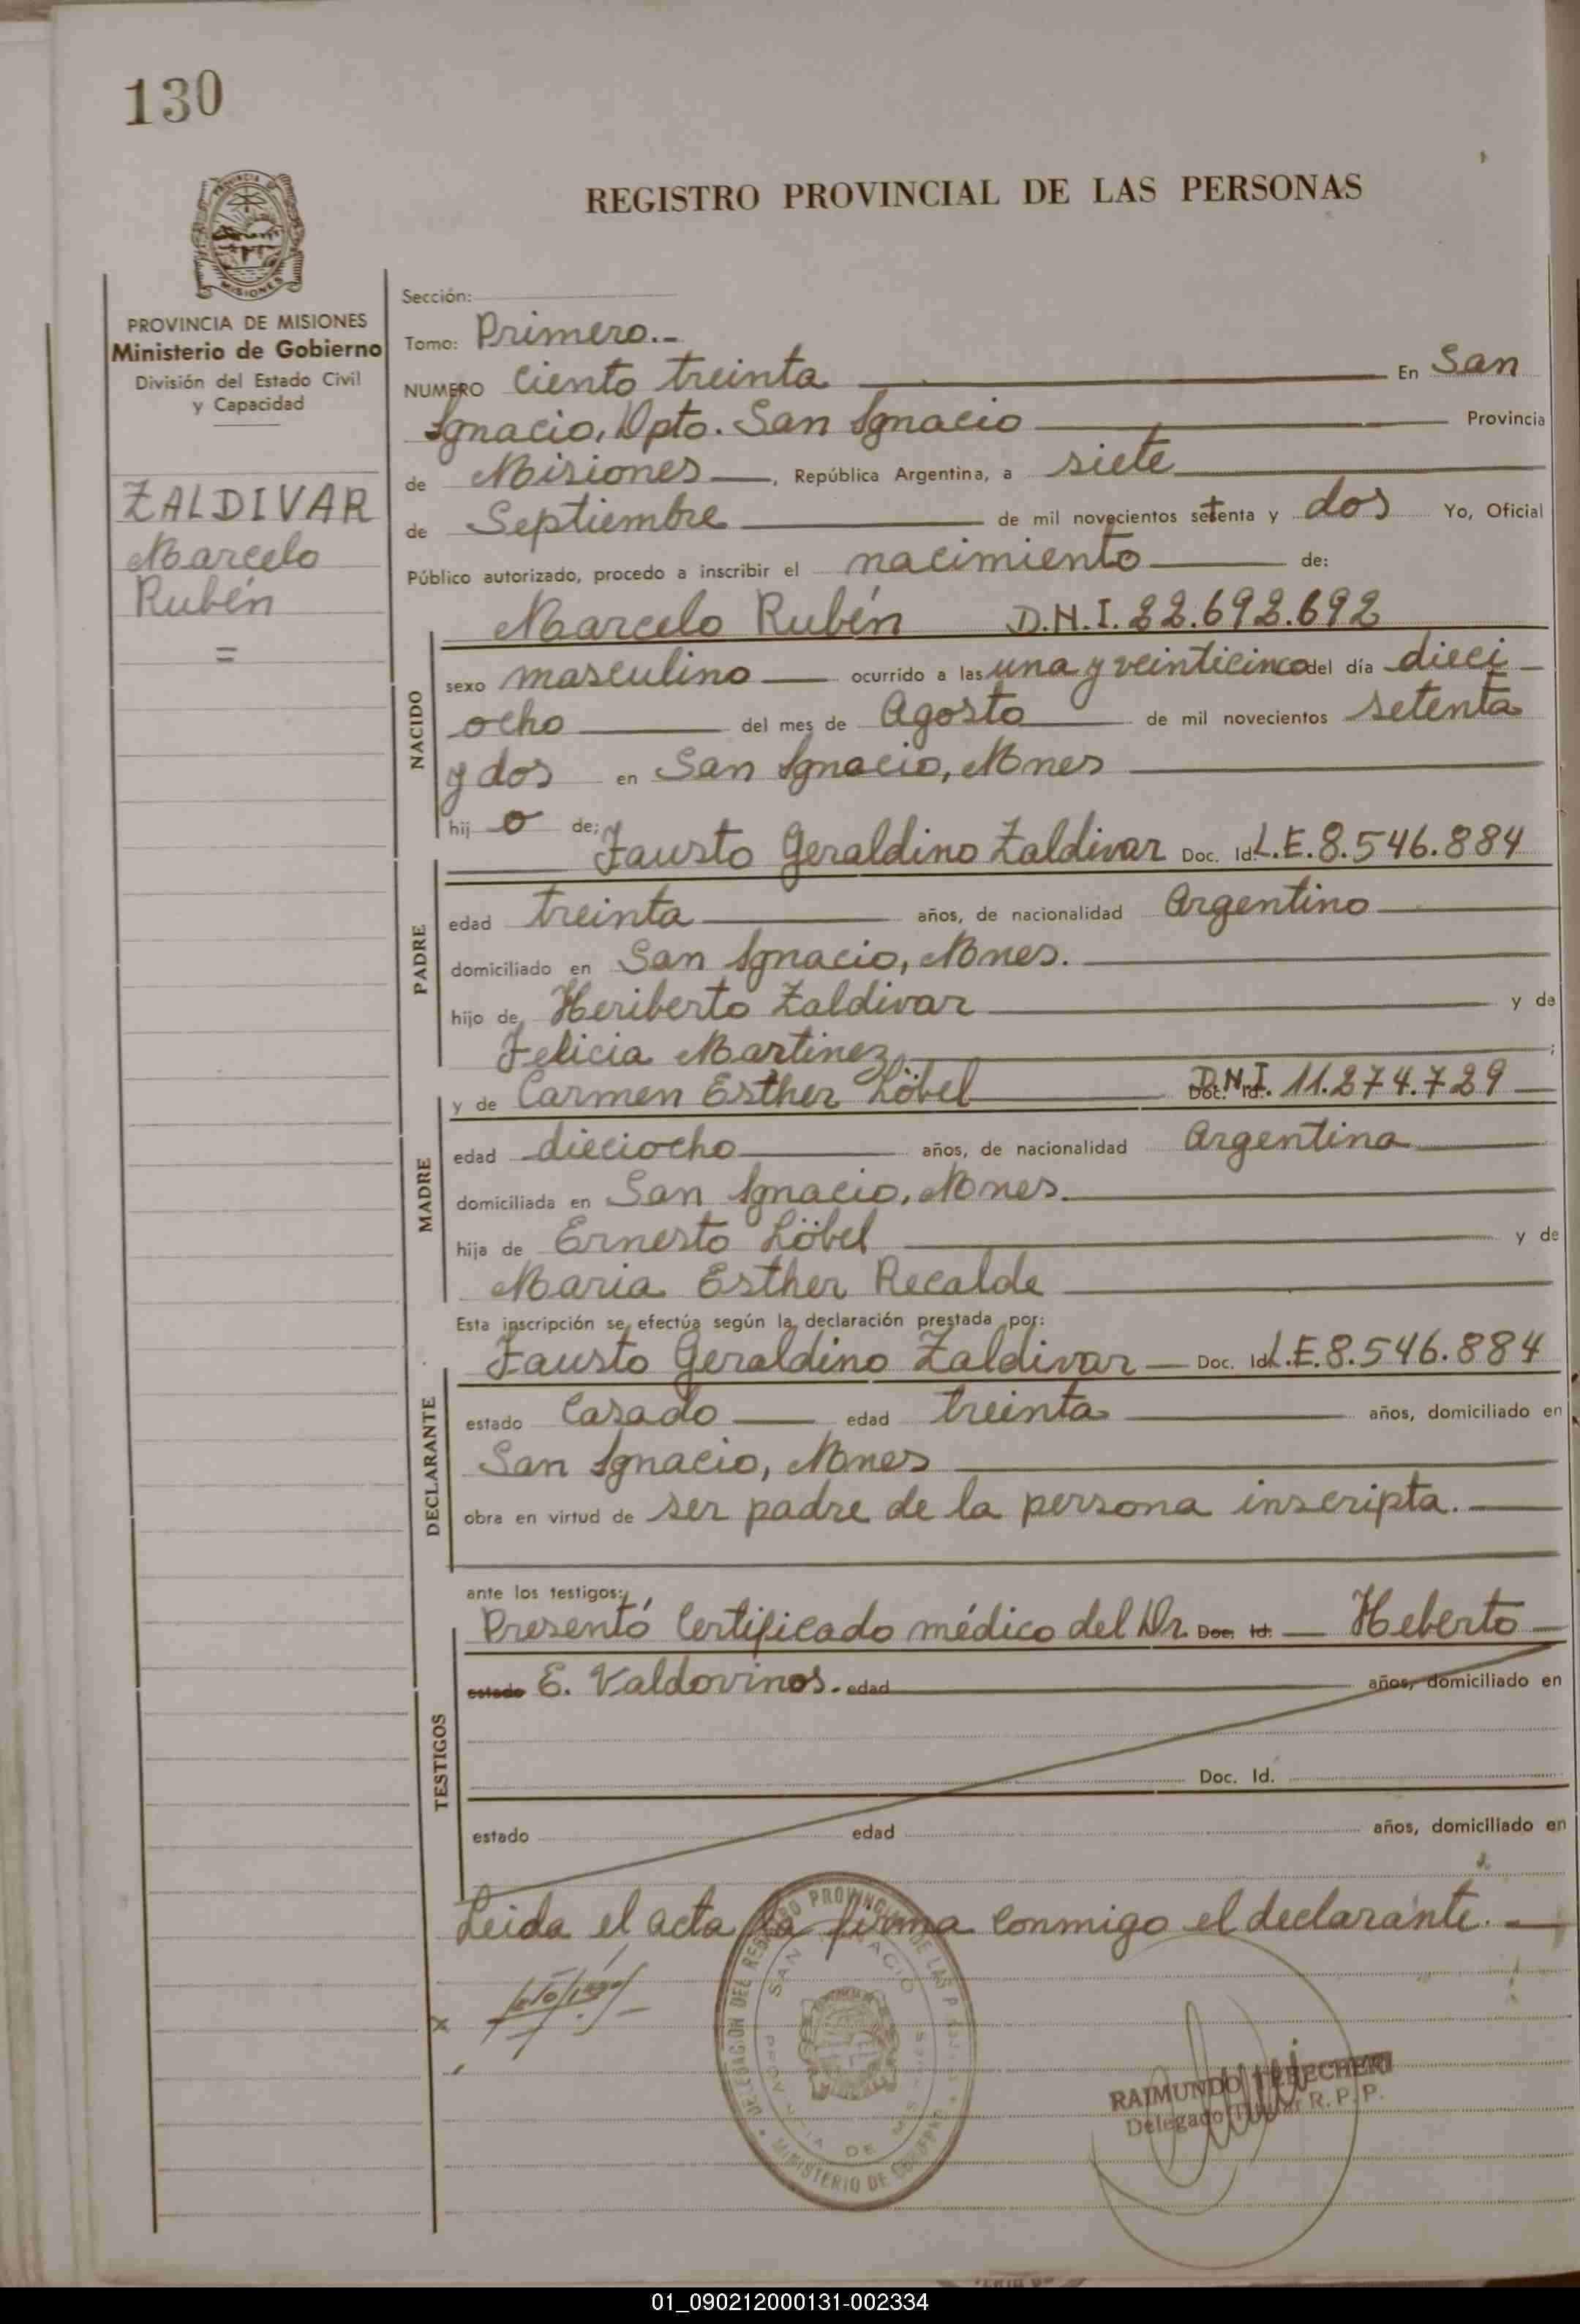 130
REGISTRO PROVINCIAL DE LAS PERSONAS
PROVINCIA DE MISIONES
Ministerio de Gobierno
División del Estado Civil
y Capacidad
ZALDIVAR
Marcelo
Rubén
=
Sección:
Tomo: Primero.-
NUMERO Ciento treinta En San
Ignacio, Dpto. San Ignacio Provincia
de Misiones, República Argentina, a siete
de Septiembre de mil novecientos setenta y dos Yo, Oficial
Público autorizado, procedo a inscribir el nacimiento de:
NACIDO
Marcelo Rubén D.N.I. 22.692.692
sexo masculino ocurrido a las una y veinticinco del día dieci
ocho del mes de Agosto de mil novecientos setenta
y dos en San Ignacio, Mnes
hij o de;
PADRE
Fausto Geraldino Zaldivar Doc. Id. L.E. 8.546.884
edad treinta años, de nacionalidad Argentino
domiciliado en San Ignacio, Mnes.
hijo de Heriberto Zaldivar y de
Felicia Martinez ;
MADRE
y de Carmen Esther Löbel Doc. Id. D.N.I. 11.274.729
edad dieciocho años, de nacionalidad Argentina
domiciliada en San Ignacio, Mnes.
hija de Ernesto Löbel y de
Maria Esther Recalde
Esta inscripción se efectúa según la declaración prestada por:
DECLARANTE
Fausto Geraldino Zaldivar Doc. Id. L.E. 8.546.884
estado Casado edad treinta años, domiciliado en
San Ignacio, Mnes
obra en virtud de ser padre de la persona inscripta.
ante los testigos:
TESTIGOS
Presentó Certificado médico del Dr. Doc. Id. Heberto
estado E. Valdovinos. edad años, domiciliado en
Doc. Id.
estado edad años, domiciliado en
Leida el acta la firma conmigo el declarante.
DELEGACION DEL REGISTRO PROVINCIAL DE LAS P
SAN IGNACIO
PROVINCIA DE MIS
MINISTERIO DE GOBIERNO
RAIMUNDO
Delegado Titular R. P. P.
01_090212000131-002334